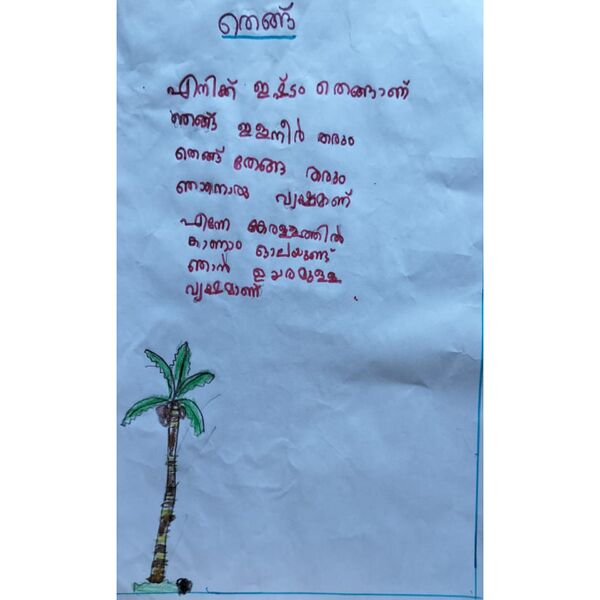 തെങ്ങ്
എനിക്ക് ഇഷ്ട്ടം തെങ്ങാണ്
ഞങ്ങ് ഇളനീർ തരും
തെങ്ങ് തേങ്ങ തരും
ഞാനൊരു വൃക്ഷമാണ്
എന്നേ കേരള്ളത്തിൽ
കാണാം ഓലയുണ്ട്
ഞാൻ ഉയരമുള്ള
വൃക്ഷമാണ്